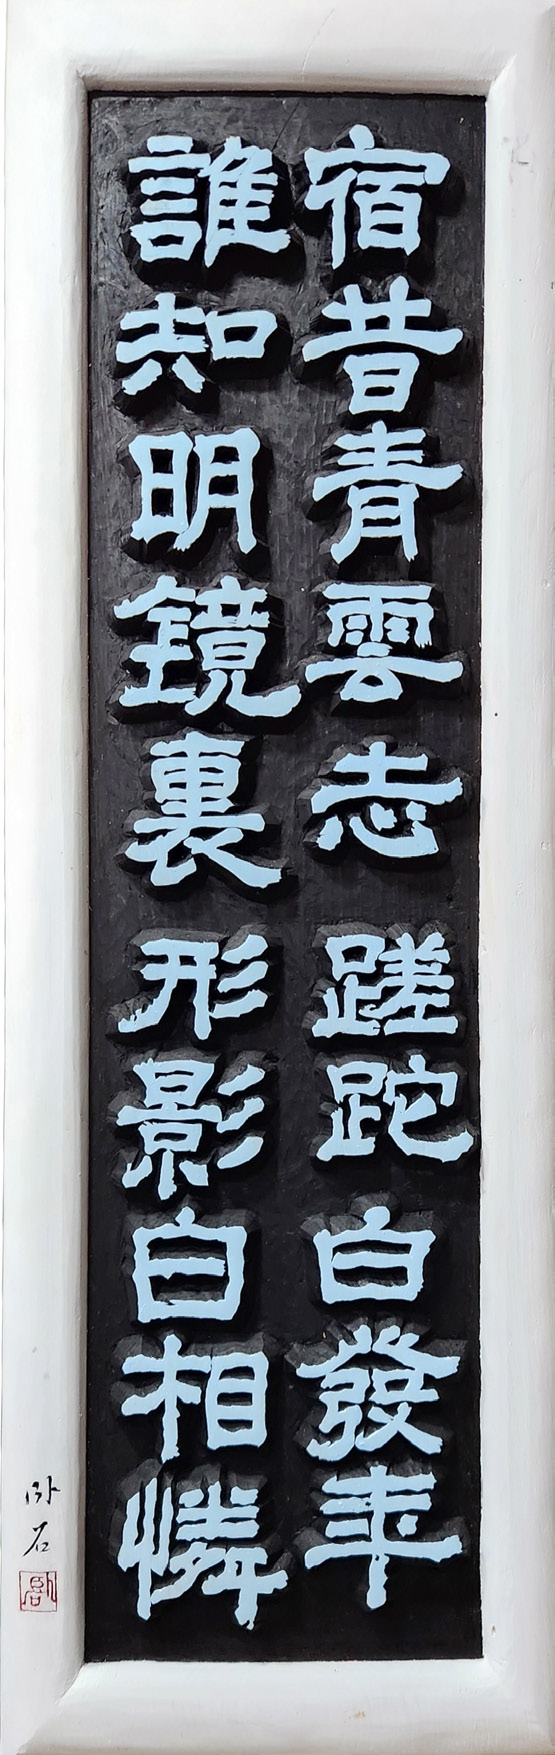 宿昔青雲志蹉跎白發年
誰知明鏡裏形影白相憐
卧石